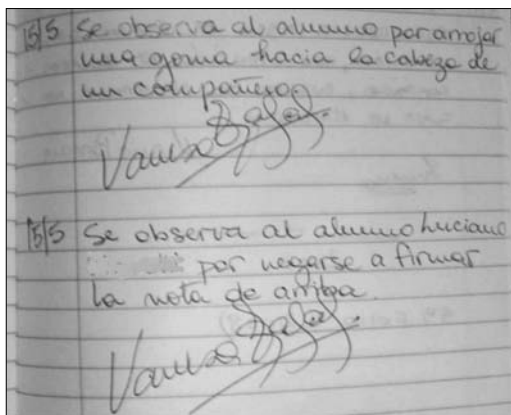 15/5 Se observa al alumno por arrojar
una goma hacia la cabeza de
un compañero
15/5 Se observa al alumno Luciano
por negarse a firmar
la nota de arriba.